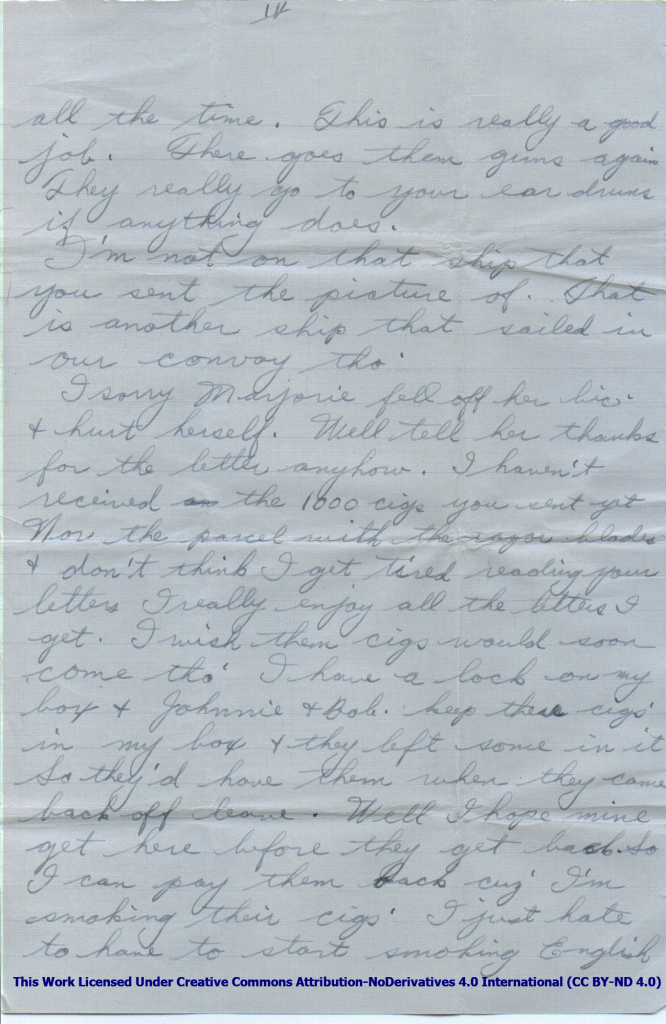 IV
all the time. This is really a good
job. There goes them guns again
They really go to your ear drums
if anything does.
I'm not on that ship that
you sent the picture of. That
is another ship that sailed in
our convoy tho'
I sorry Marjorie fell off her bic.
& hurt herself. Well tell her thanks
for the letter anyhow. I haven't
received the 1000 cigs you sent yet
Nor the parcel with the razor blades
& don't think I get tired reading your
letters I really enjoy all the letters I
get. I wish them cigs would soon
come tho' I have a lock on my
box & Johnnie & Bob. keep their cigs
in my box & they left some in it
So they'd have them when they came
back off leave. Well I hope mine
get here before they get back. So
I can pay them back cuz' I'm
smoking their cigs' I just hate
to have to start smoking English
This Work Licensed Under Creative Commons Attribution-NoDerivatives 4.0 International (CC BY-ND 4.0)